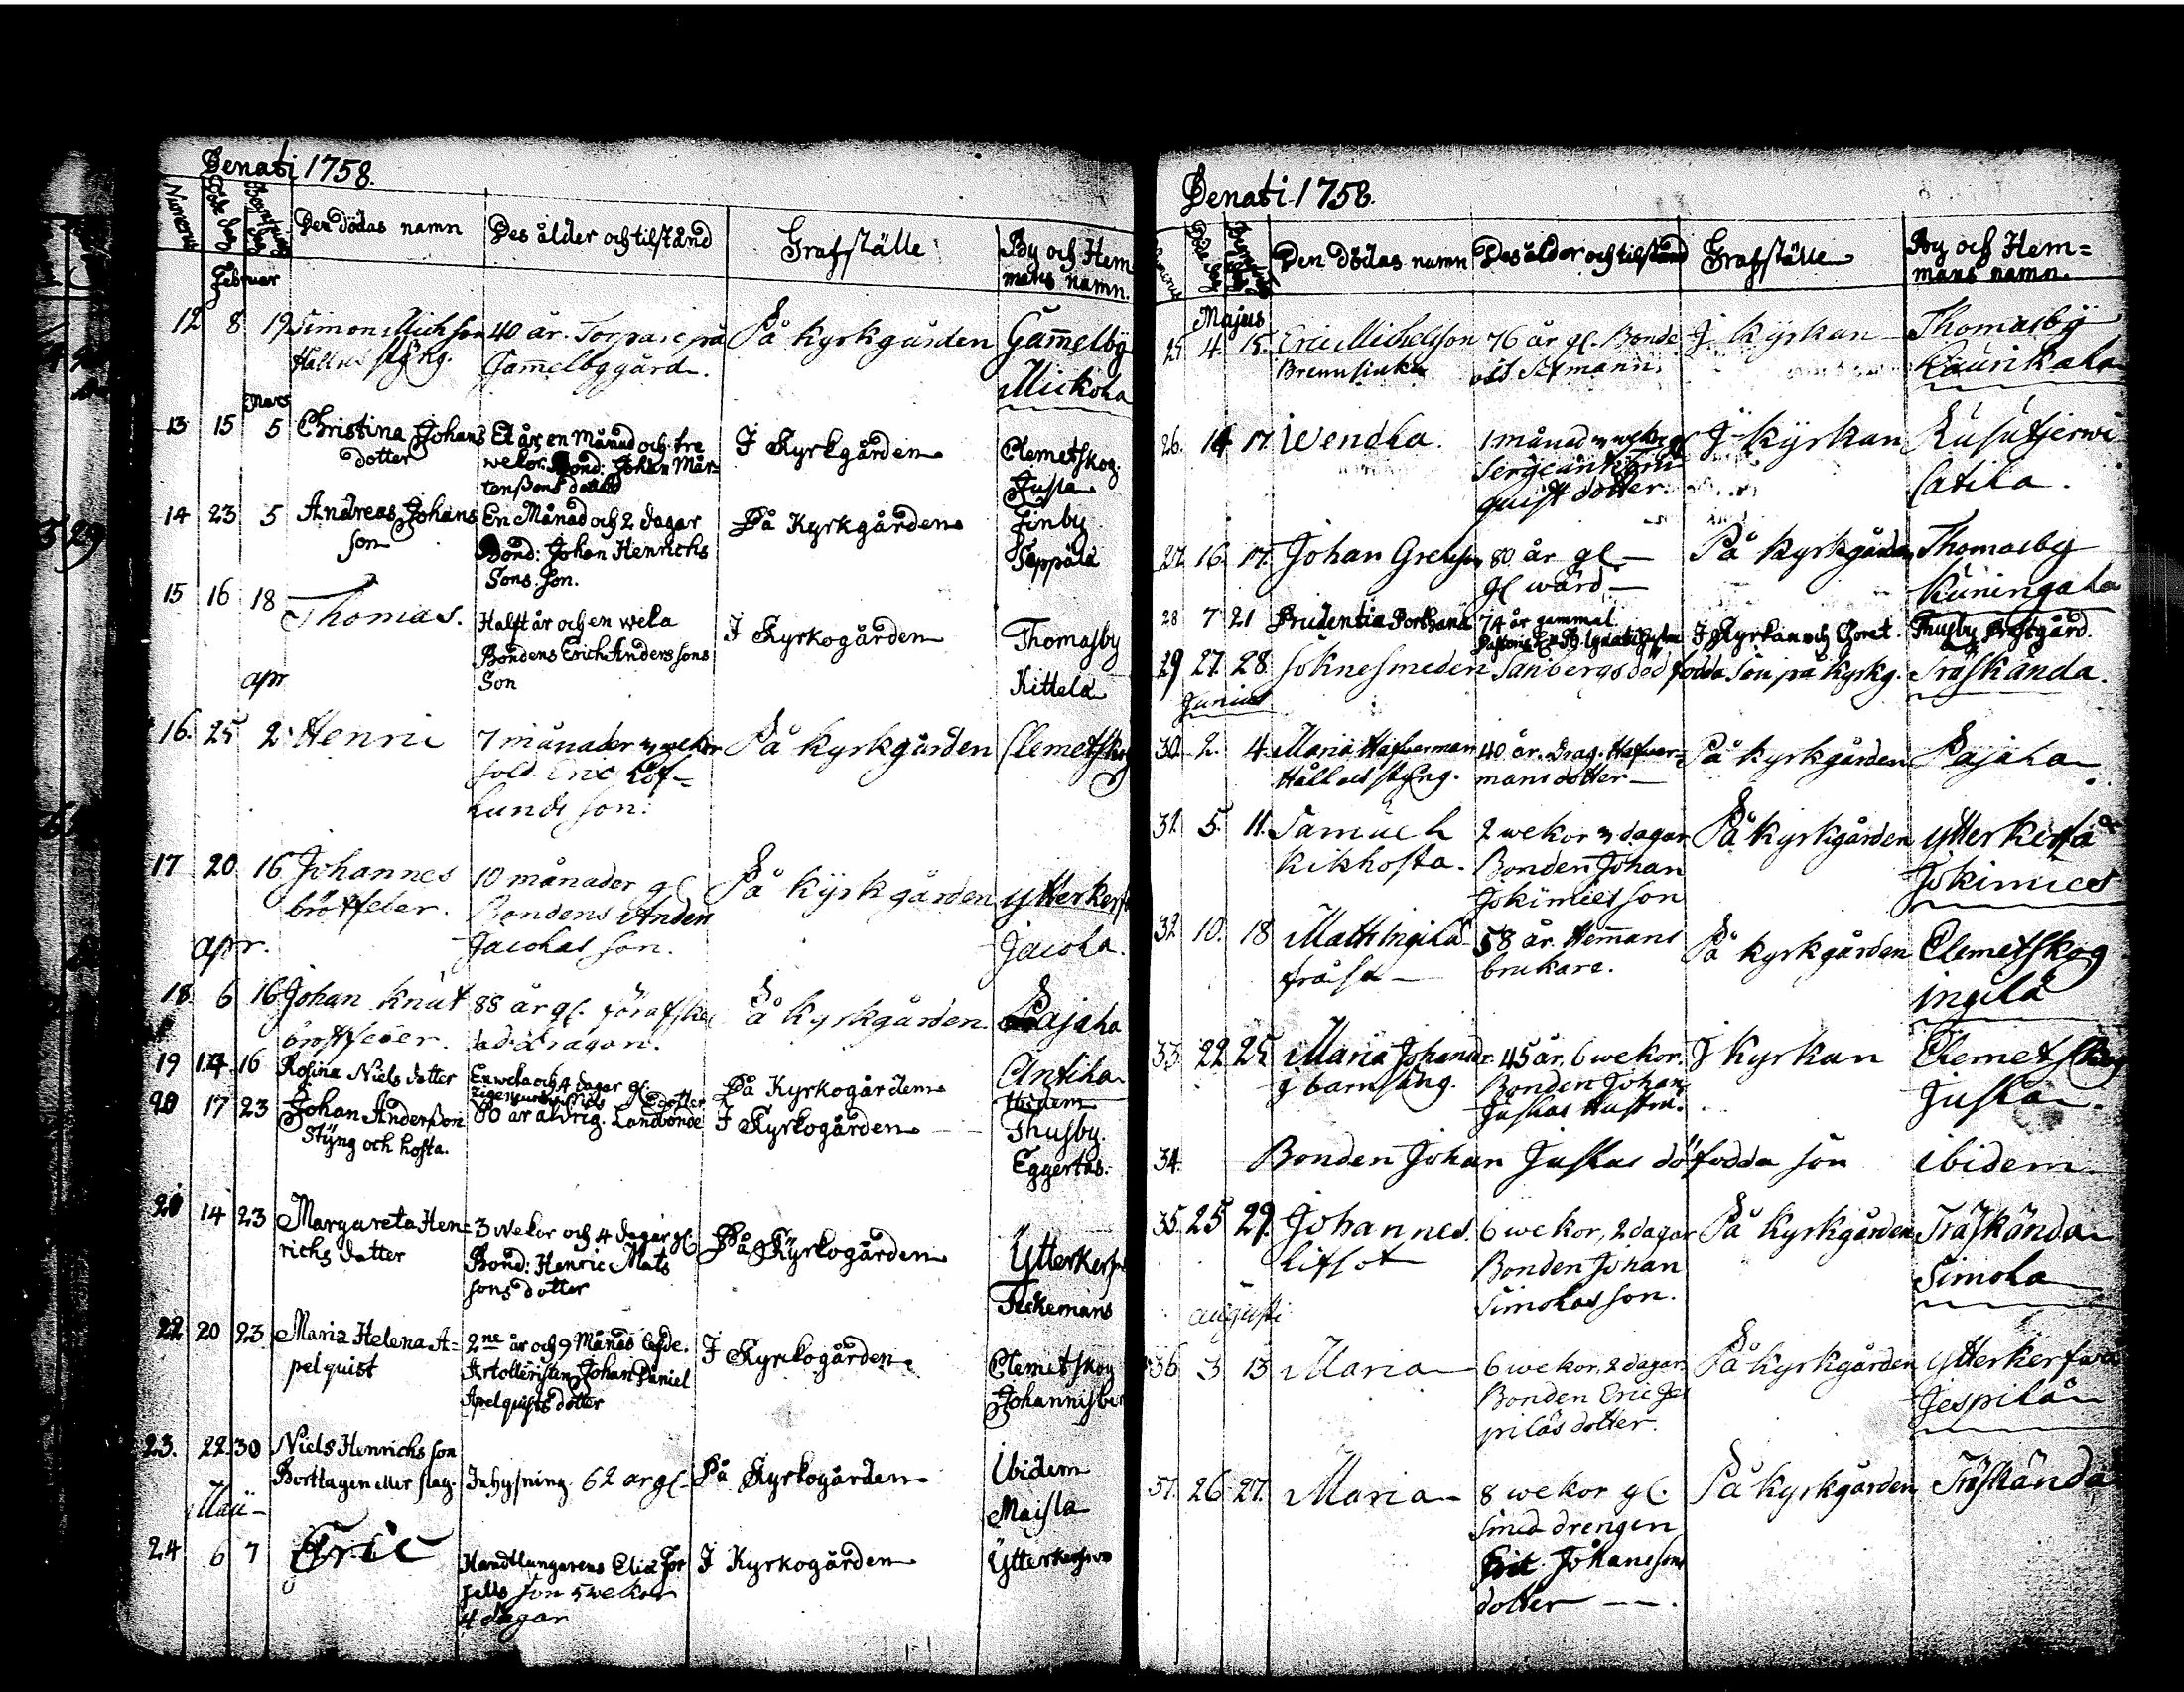 Denati 1758.
Numerus Döde dag Begrafnings dag Den dödas namn Des ålder och tilstånd Grafställe By och Hem
mans namn.
Februar
12 8 19 Simon Mich son 40 år. Torpare på På kyrkgården Gam̃elby
Håll och styng. Gam̃elbygård. Mickola
Mars
13 15 5 Christina Johans Et år, en Månad och tre I Kyrkgården Clemetskog
dotter wekor. Bond: Johan Mår= Jussa
tenßons dotter
14 23 5 Andreas Johans En Månad och 2 dagar På Kyrkgården Finby
son Bond: Johan Henrichs Seppälä
Sons Son.
15 16 18 Thomas. Halft år och en weka I Kyrkogården Thomasby
Bondens Erich Anders sons Kittela
Son
apr
16. 25 2. Henric 7 månader 3 wekor På kyrkgården Clemetskog
sold. Eric Löf=
lunds son.
17 20 16 Johannes 10 månader gl. På kyrkgården Ytterkerf
bröstfeber. Bondens Anders Jacola.
Jacolas son.
apr.
18 6 16 Johan Knut 88 år gl. förafske På kyrkgården Pajala
bröstfeber. dad dragon.
19 14 16 Rosina Niels dotter En weka och 4 dagar gl. På Kyrkogården Antila
dotter Ibidem
20 17 23 Johan Anderßon 80 år åldrig. Landbonde I Kyrkogården Thusby.
Styng och hosta. Eggertas.
21 14 23 Margareta Hen= 3 wekor och 4 dagar gl På Kyrkogården Ytterkers
richs dotter Bond: Henric Mats Fickemans
sons dotter
22 20 23 Maria Helena A= 2ne år och 9 Månad lefde. I Kyrkogården Clemetskog
pelquist Artolleristen Johan Daniel Johannisber
Apelquists dotter
23. 22 30 Niels Henrichs son Inhysning. 62 år gl. På Kyrkogården Ibidem
Borttagen eller slag. Maisla
Maii
24 6 7 Eric Handtlangarens Elia For I Kyrkogården Ytterkerswo
sells son 5 wekor
4 dagar
Denati 1758.
Numerus Döde dag Begrafnings dag Den dödas namn Des ålder och tilstånd Grafställe By och Hem=
mans namn.
Majus
25. 4. 15. Eric Michelsson 76 år gl. Bonde I kyrkan Thomasby
Brennsiuka och Sexmann. Kaurikala
26. 14 17. Wendla. 1 månad 3 wekor gl I kyrkan Rusutjerwi
Sergeant Catila.
quist dotter.
27. 16. 17. Johan Grelsson 80 år gl På kyrkgården Thomasby
gl wärd Kuningala
28 7 21 Prudentia Porthana 74 år gammal I Kyrkan och Choret. Thusby Prestgård.
29 27. 28. Soknesmeden Sanbergs död födda son på kyrkg. Träskända.
Junius
30. 2. 4. Maria Hafverman 40 år. Drag. Hafver= På kyrkgården Pajala
Håll och styng. mans dotter
31. 5. 11. Samuel 2 wekor 3 dagar På kyrkgården Ytterkerfwå
Kikhosta. Bonden Johan Jokimies
Jokimies son
32. 10. 18 Matts Ingilä 58 år. Hem̃ans På kyrkgården Clemetskog
fråssa brukare. Ingilä
33. 22 25. Maria Johansdr. 45 år. 6 wekor. I kyrkan Clemetskog
I barnsäng. Bonden Johan Jussila
Jussilas Hustru.
34. Bonden Johan Jussilas dödfödda son ibidem
35. 25 29. Johannes. 6 wekor, 2 dagar På kyrkgården Träskända
Bonden Johan Simola
Simolas son.
augusti
36 3 13 Maria 6 wekor, 2 dagar På kyrkgården Ytterkerfwå
Bonden Eric Jes Jespilä
piläs dotter.
37. 26 27. Maria 8 wekor gl. På kyrkgården Träskända
Smed drengen
Johanssons
dotter